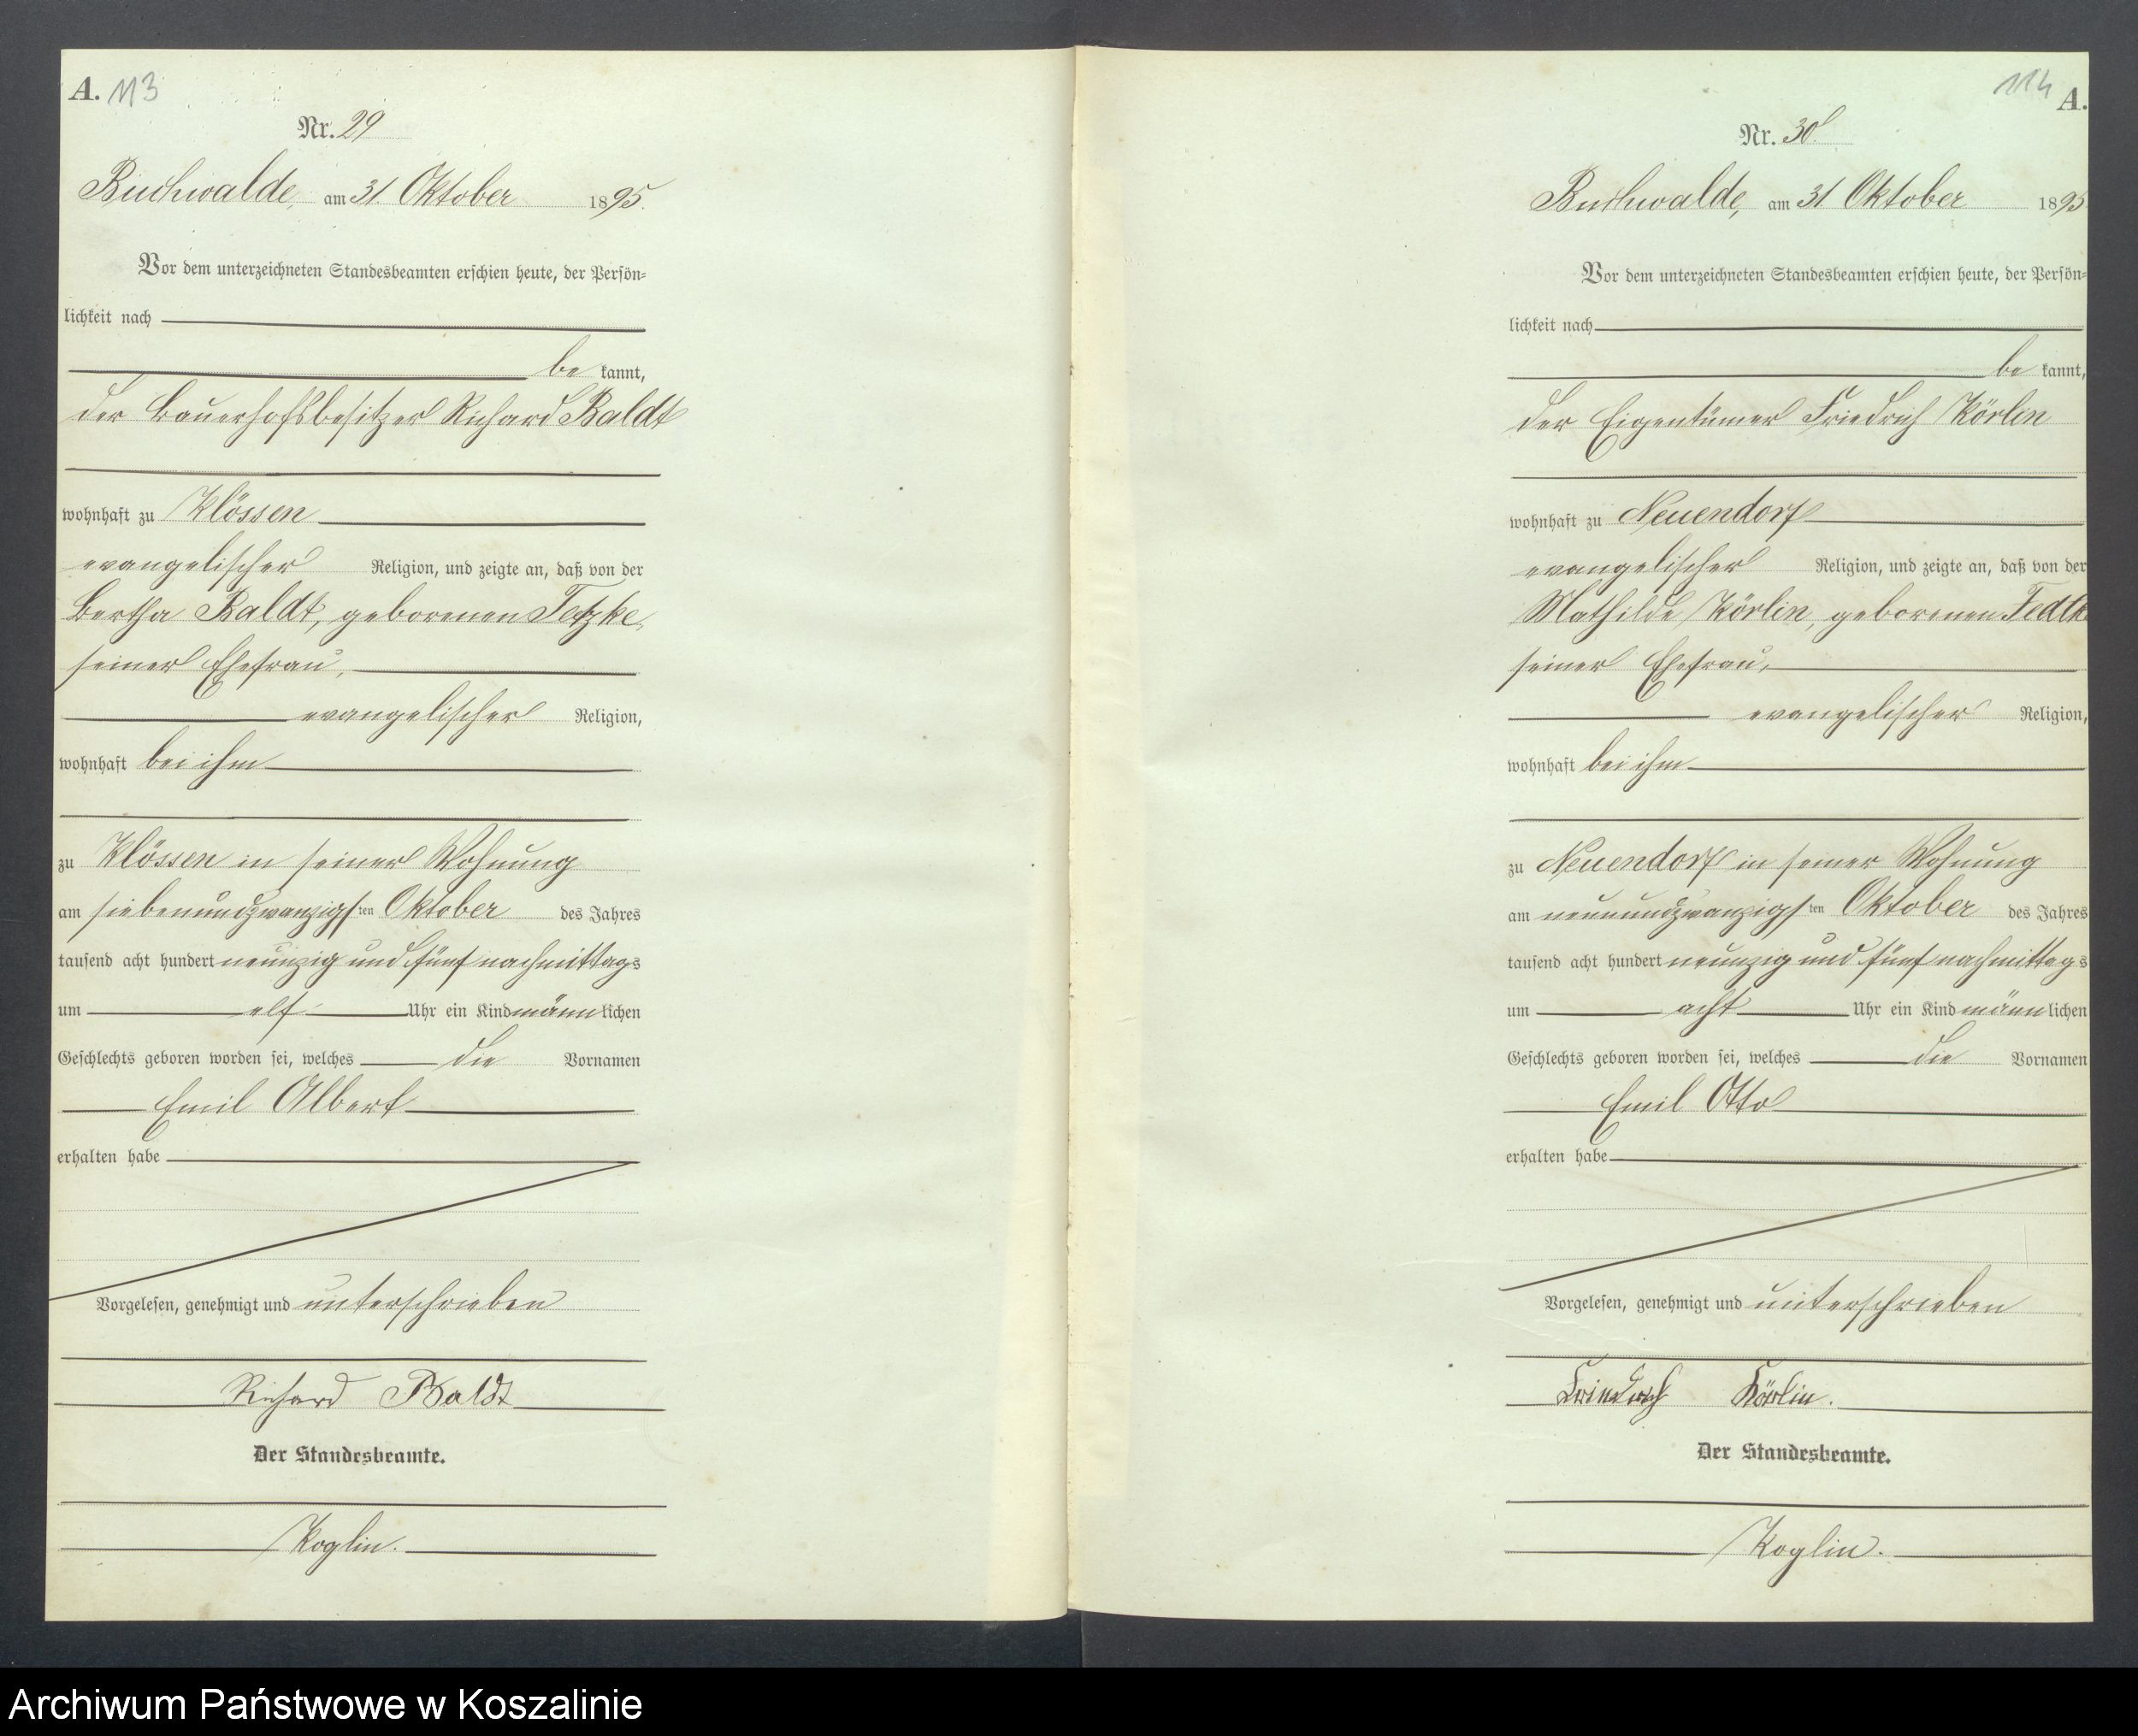 A. 113
Nr. 29
Buchwalde, am 31. Oktober 1895.
Vor dem unterzeichneten Standesbeamten erschien heute, der Persön=
lichkeit nach
be kannt,
der Bauerhofsbesitzer Richard Baldt
wohnhaft zu Klössen
evangelischer Religion, und zeigte an, daß von der
Bertha Baldt, geborenen Tetzke,
seiner Ehefrau,
evangelischer Religion,
wohnhaft bei ihm
zu Klössen in seiner Wohnung
am siebenundzwanzigsten Oktober des Jahres
tausend acht hundert neunzig und fünf nachmittags
um elf Uhr ein Kind männlichen
Geschlechts geboren worden sei, welches die Vornamen
Emil Albert
erhalten habe
Vorgelesen, genehmigt und unterschrieben
Richard Baldt
Der Standesbeamte.
Koglin.
114 A.
Nr. 30.
Buchwalde, am 31. Oktober 1895
Vor dem unterzeichneten Standesbeamten erschien heute, der Persön=
lichkeit nach
be kannt,
der Eigentümer Friedrich Körlin
wohnhaft zu Neuendorf
evangelischer Religion, und zeigte an, daß von der
Mathilde Körlin, geborenen
seiner Ehefrau,
evangelischer Religion,
wohnhaft bei ihm
zu Neuendorf in seiner Wohnung
am neunundzwanzigsten Oktober des Jahres
tausend acht hundert neunzig und fünf nachmittags
um acht Uhr ein Kind männlichen
Geschlechts geboren worden sei, welches die Vornamen
Emil Otto
erhalten habe
Vorgelesen, genehmigt und unterschrieben
Friedrich Körlin.
Der Standesbeamte.
Koglin.
Archiwum Państwowe w Koszalinie